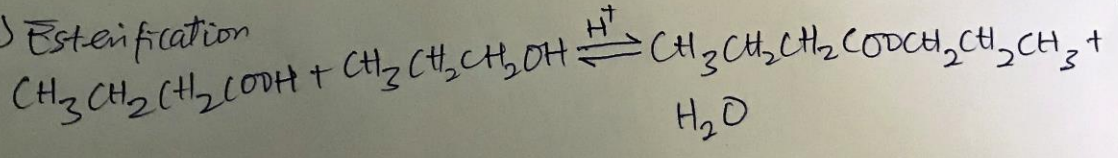 ) Esterification
CH₃CH₂CH₂COOH + CH₃CH₂CH₂OH ⇌[H⁺] CH₃CH₂CH₂COOCH₂CH₂CH₃ +
H₂O